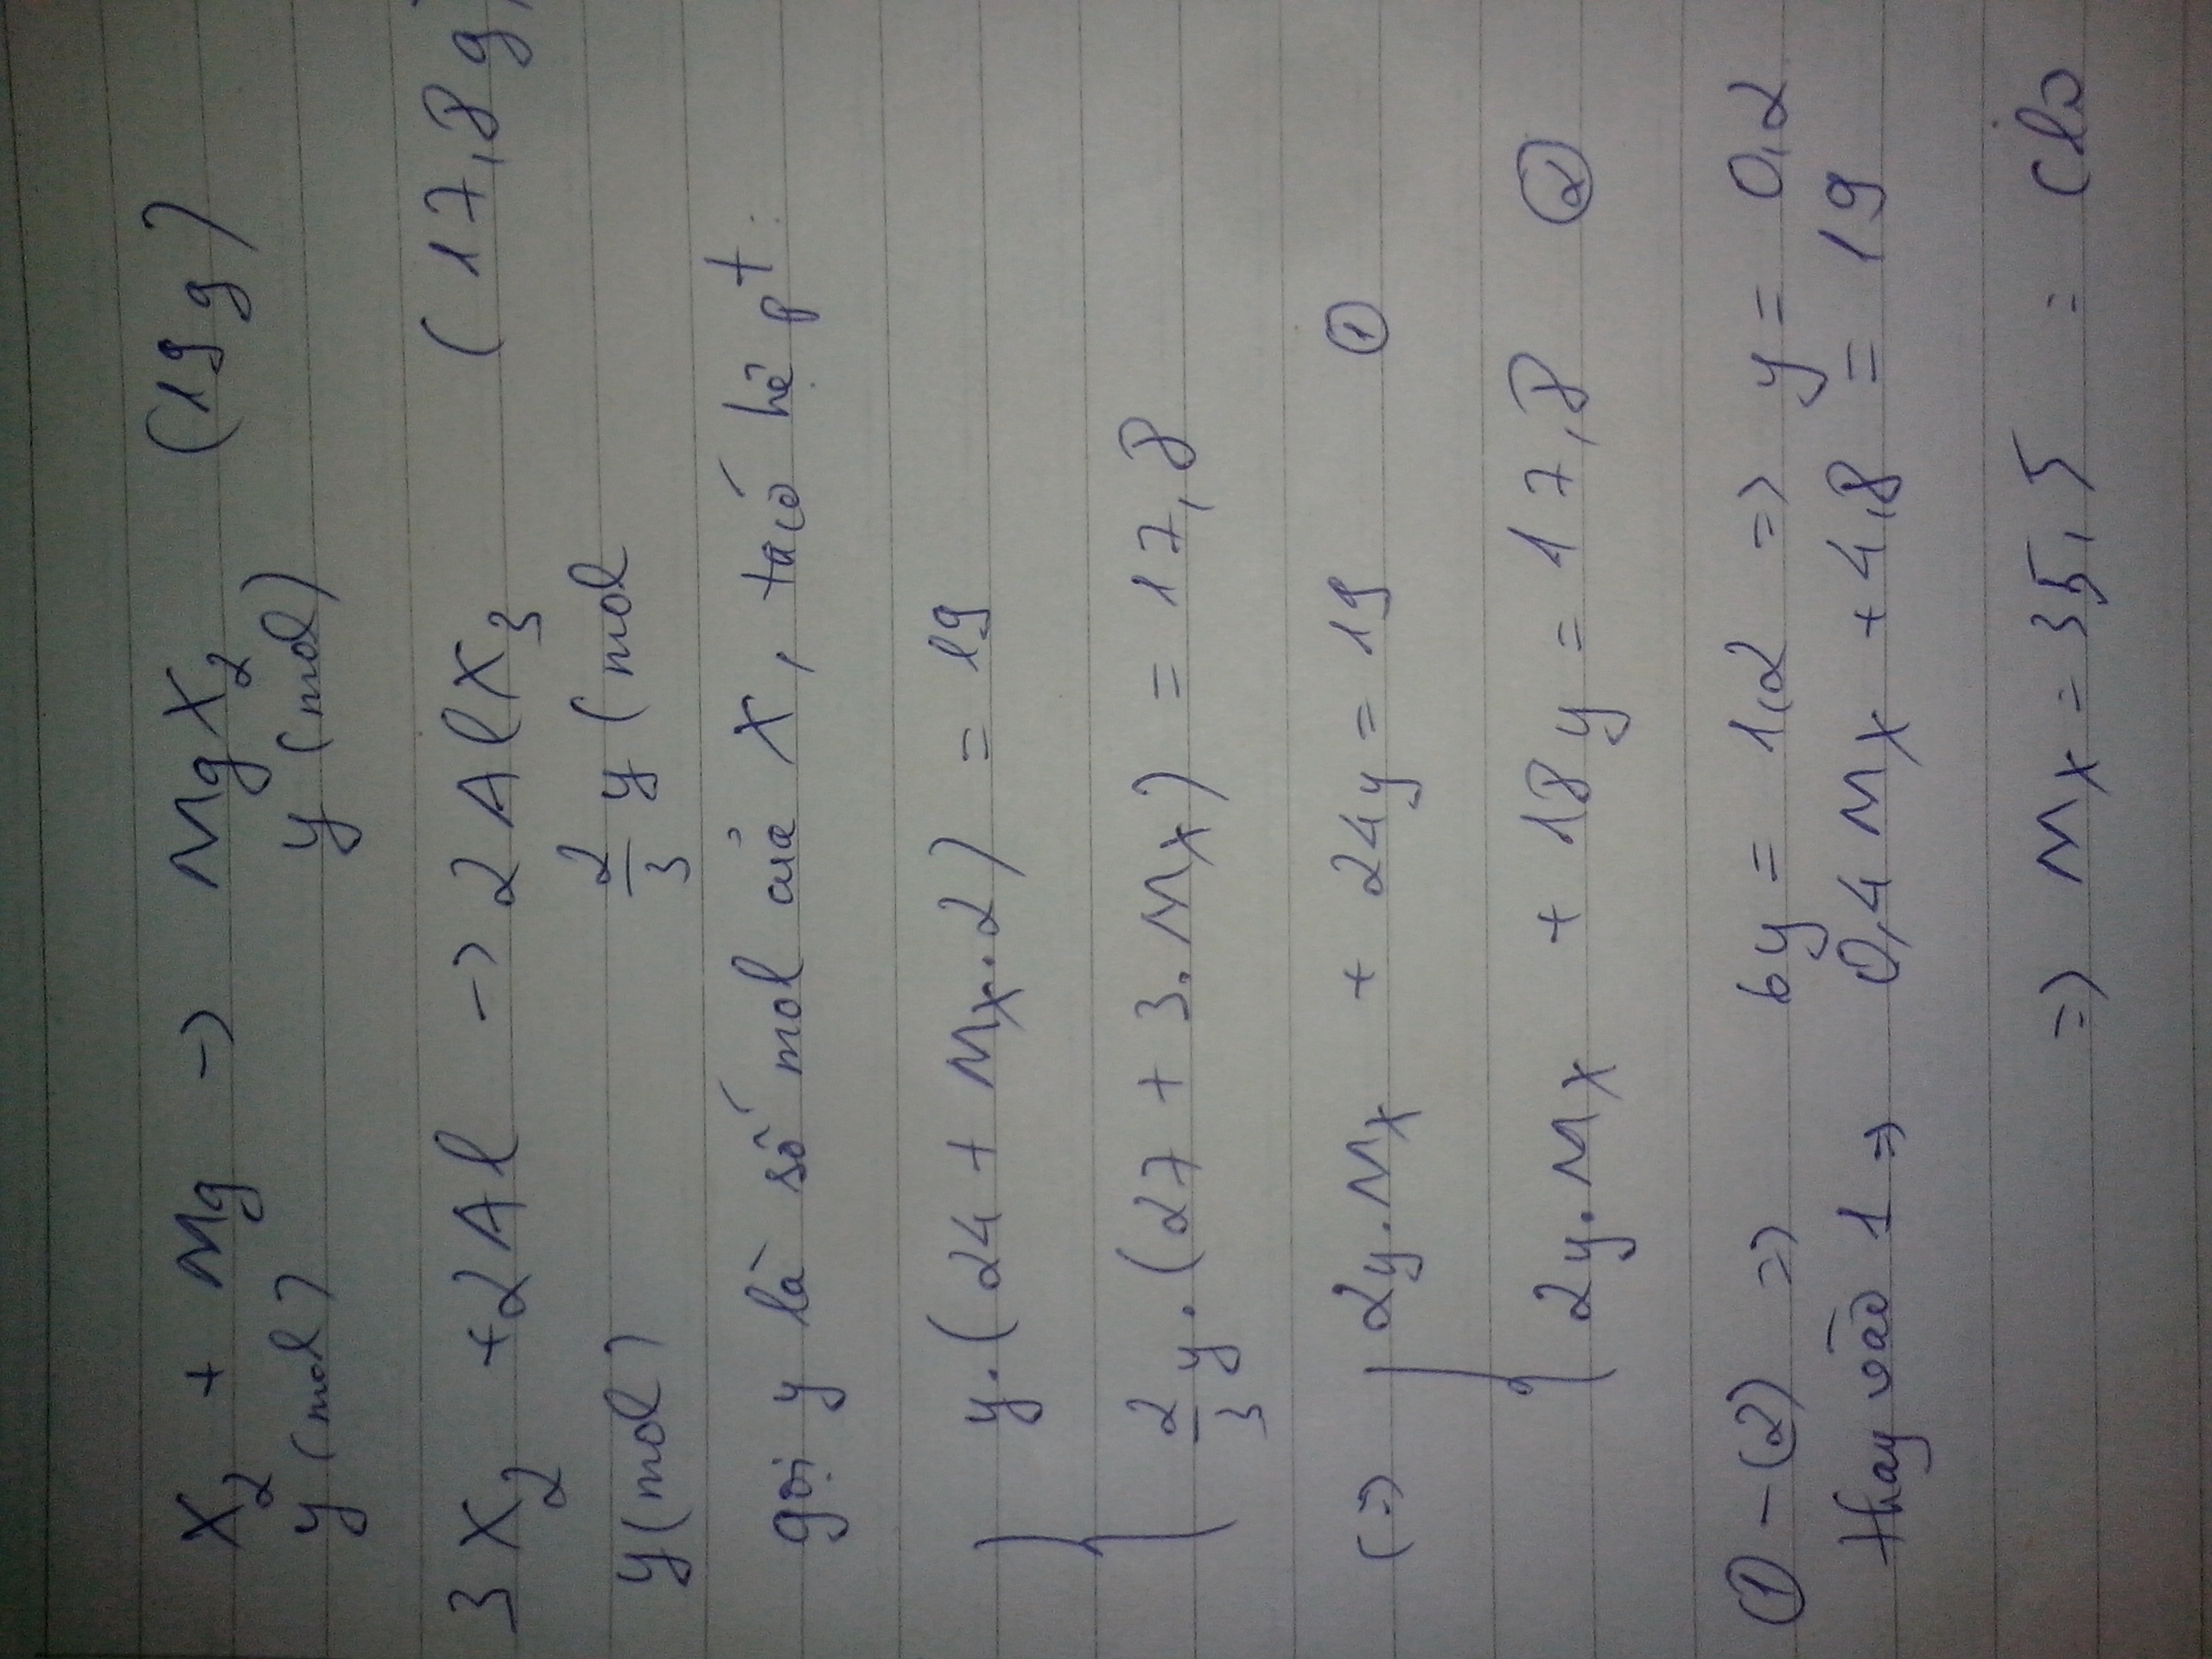 X₂ + Mg -> MgX₂ (19g)
y (mol) y (mol)
3X₂ + 2Al -> 2AlX₃ (17,8g)
y(mol) 2/3 y (mol
gọi y là số mol của X, ta có hệ pt:
{ y.(24 + Mx.2) = 19
2/3 y.(27 + 3.Mx) = 17,8
(=) { 2y.Mx + 24y = 19 ①
2y.Mx + 18y = 17,8 ②
① - (2) => 6y = 1,2 => y = 0,2
thay vào 1 => 0,4 Mx + 4,8 = 19
=> Mx = 35,5 : Clo